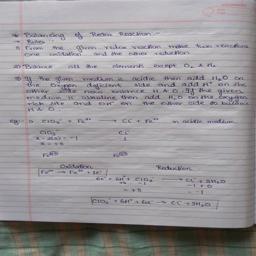 * Balancing of Redox Reaction :-
→ Rules :-
1) From the given redox reaction make two reactions
one oxidation and the other reduction
2) Balance all the elements except O₂ & H₂
3) If the given medium is acidic then add H₂O on
the oxygen deficient side and add H⁺ on the
other side to balance H & O. If the given
medium is alkaline then add H₂O on the oxygen
rich side and OH⁻ on the other side to balance
H & O
eg:- ClO₃⁻ + Fe²⁺ → Cl⁻ + Fe³⁺ in acidic medium
ClO₃⁻ Cl⁻
x - 2(3) = -1
x = +5
Oxidation Reduction
Fe²⁺ → Fe³⁺ + 1e⁻
6e⁻ + 6H⁺ + ClO₃⁻ → Cl⁻ + 3H₂O
ClO₃⁻ + 6H⁺ + 6e⁻ → Cl⁻ + 3H₂O